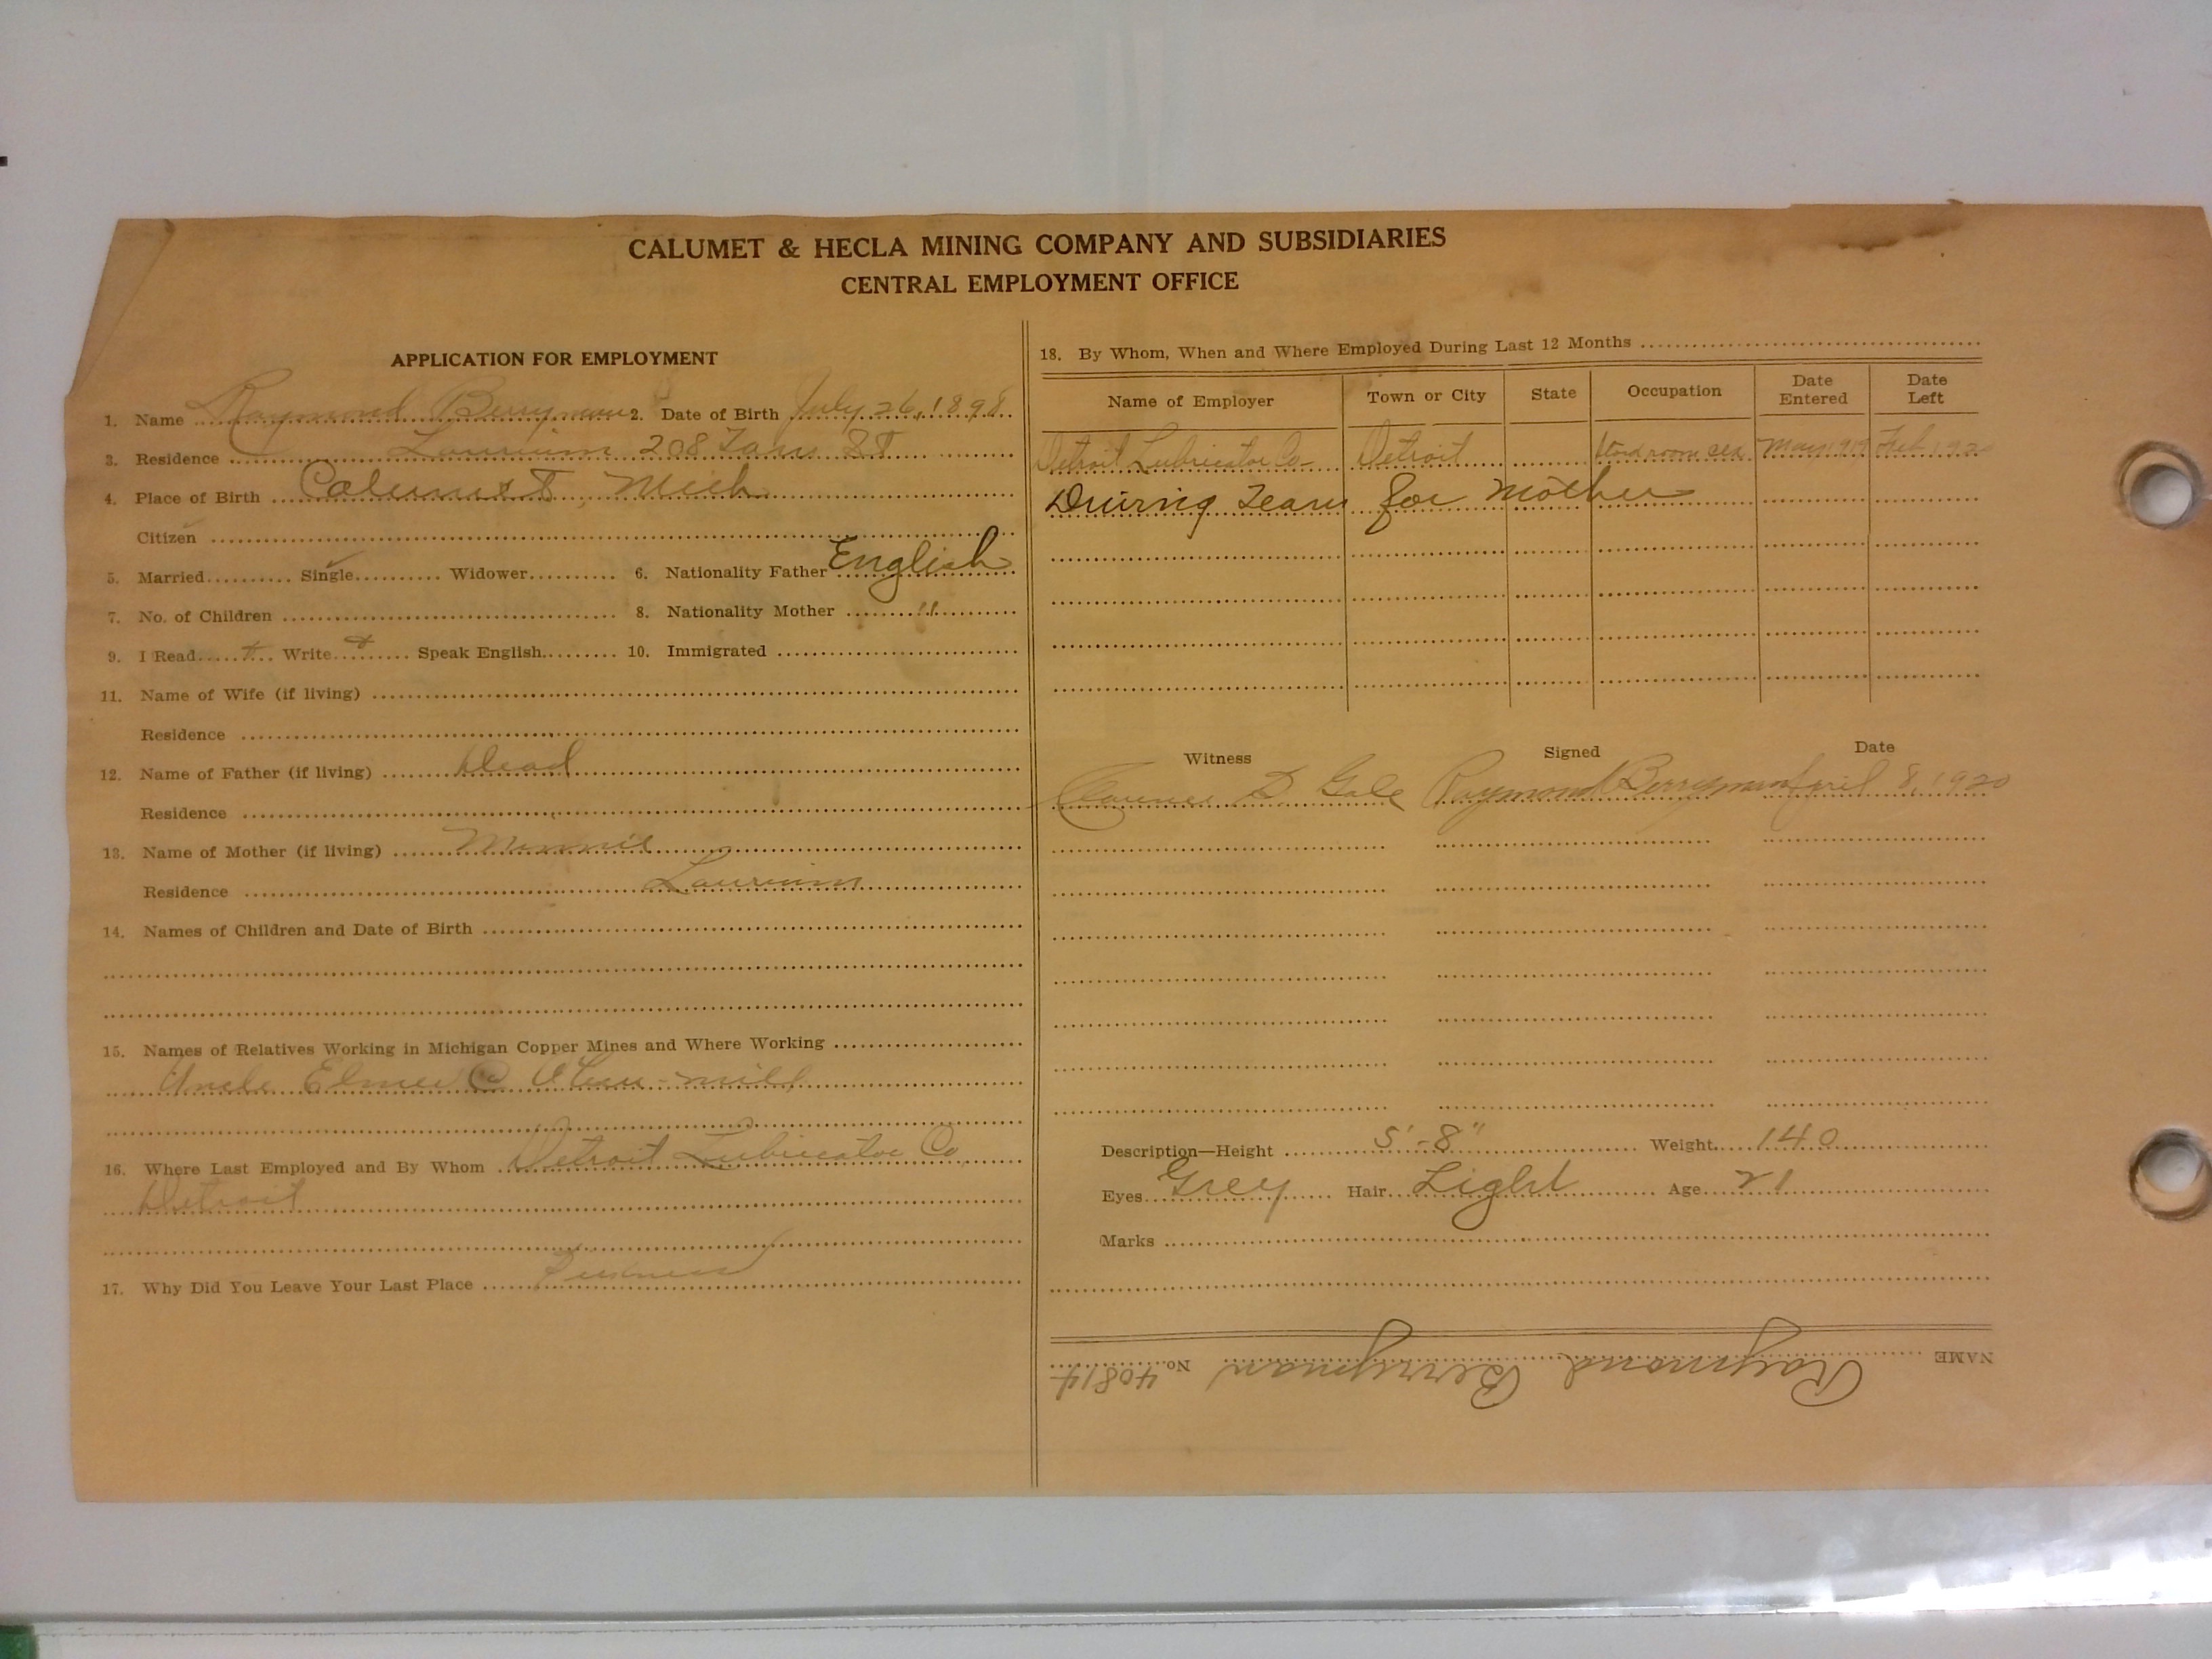 CALUMET & HECLA MINING COMPANY AND SUBSIDIARIES
CENTRAL EMPLOYMENT OFFICE
APPLICATION FOR EMPLOYMENT
1. Name Raymond Berryman 2. Date of Birth July 26, 1898
3. Residence Laurium 208 St
4. Place of Birth Calumet, Mich
Citizen
5. Married Single Widower 6. Nationality Father English
7. No. of Children 8. Nationality Mother "
9. I Read Write Speak English 10. Immigrated
11. Name of Wife (if living)
Residence
12. Name of Father (if living) Dead
Residence
13. Name of Mother (if living) Minnie
Residence Laurium
14. Names of Children and Date of Birth
15. Names of Relatives Working in Michigan Copper Mines and Where Working
Uncle Elmer mill
16. Where Last Employed and By Whom Detroit Lubricator Co
Detroit
17. Why Did You Leave Your Last Place
18. By Whom, When and Where Employed During Last 12 Months
Name of Employer Town or City State Occupation Date Entered Date Left
Detroit Lubricator Co Detroit room May 1919 Feb 1920
Driving Team for Mother
Witness Signed Date
Clarence D. Gale Raymond Berryman April 8, 1920
Description—Height 5'-8" Weight 140
Eyes Grey Hair Light Age 21
Marks
NAME Raymond Berryman No. 40814